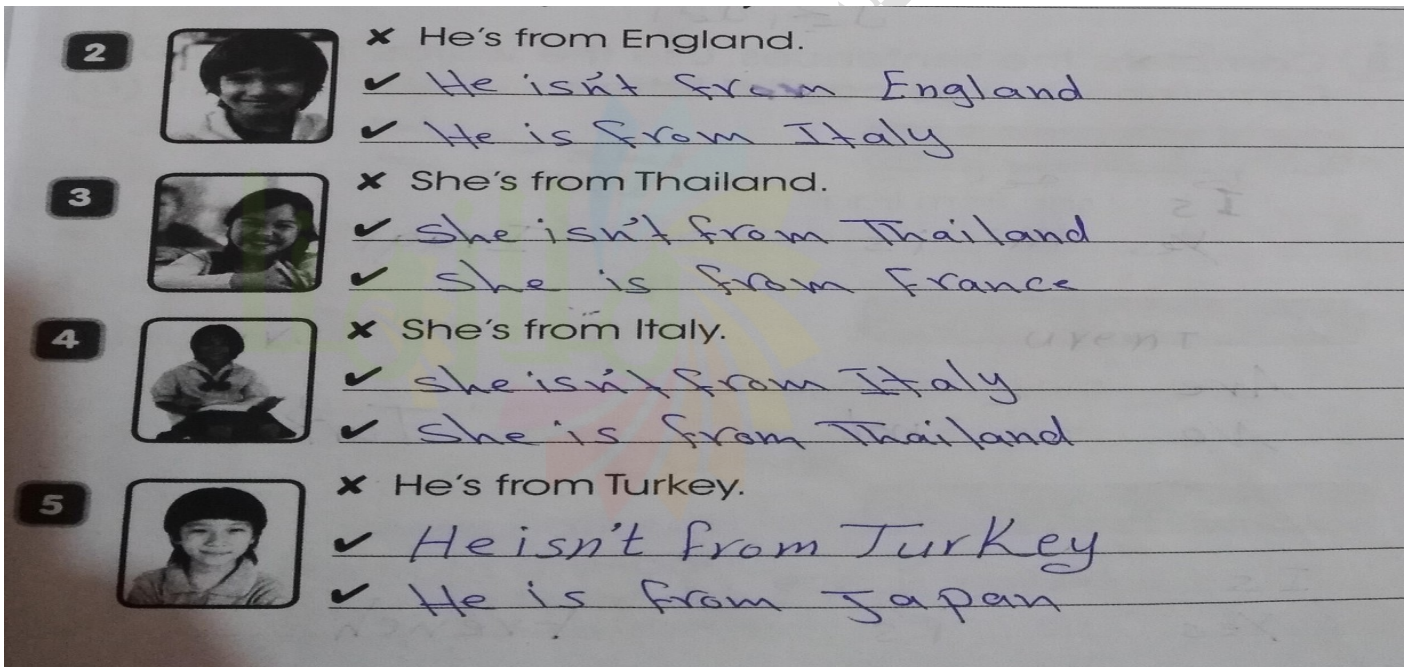 2
✗ He's from England.
✓ He isn't from England
✓ He is from Italy
3
✗ She's from Thailand.
✓ She isn't from Thailand
✓ She is from France
4
✗ She's from Italy.
✓ She isn't from Italy
✓ She is from Thailand
5
✗ He's from Turkey.
✓ He isn't from Turkey
✓ He is from Japan